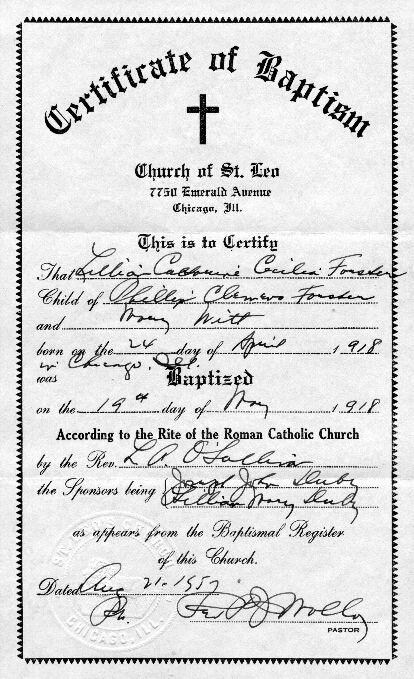 Certificate of Baptism
Church of St. Leo
7750 Emerald Avenue
Chicago, Ill.
This is to Certify
That Lillian Catherine Cecilia Forster
Child of Phillip Clemens Forster
and Mary Witt
born on the 24 day of April 1918
in Chicago, Ill.
was Baptized
on the 19th day of May 1918
According to the Rite of the Roman Catholic Church
by the Rev. L. P. O'Sullivan
the Sponsors being Joseph John
Lillian Mary
as appears from the Baptismal Register
of this Church.
Dated Aug 21-1957
PASTOR
CHICAGO, ILL.